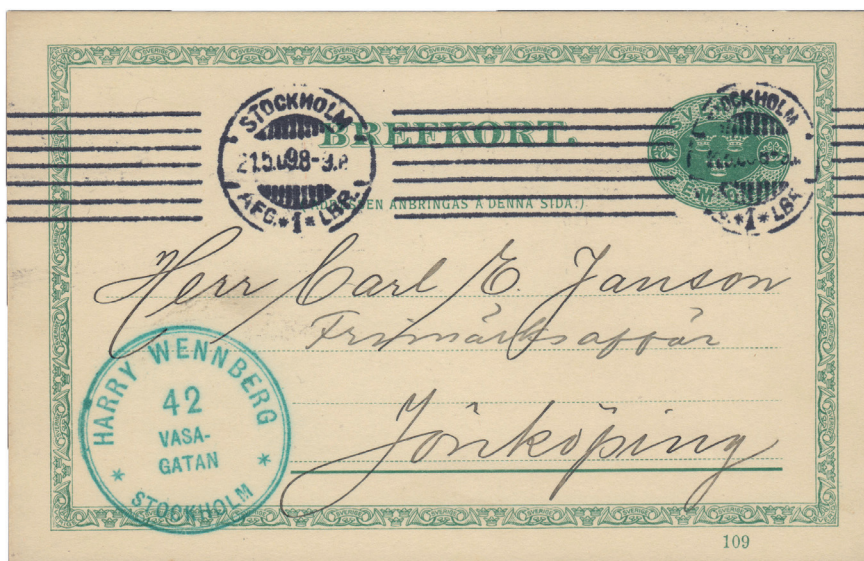 BREFKORT.
STOCKHOLM
21.5.09 8-9.F.
AFG. * 1 * LBR.
STOCKHOLM
LBR
ANBRINGAS Å DENNA SIDA.)
Herr Carl E. Janson
Frimärksaffär
Jönköping
HARRY WENNBERG
42
VASA-
GATAN
* STOCKHOLM *
109